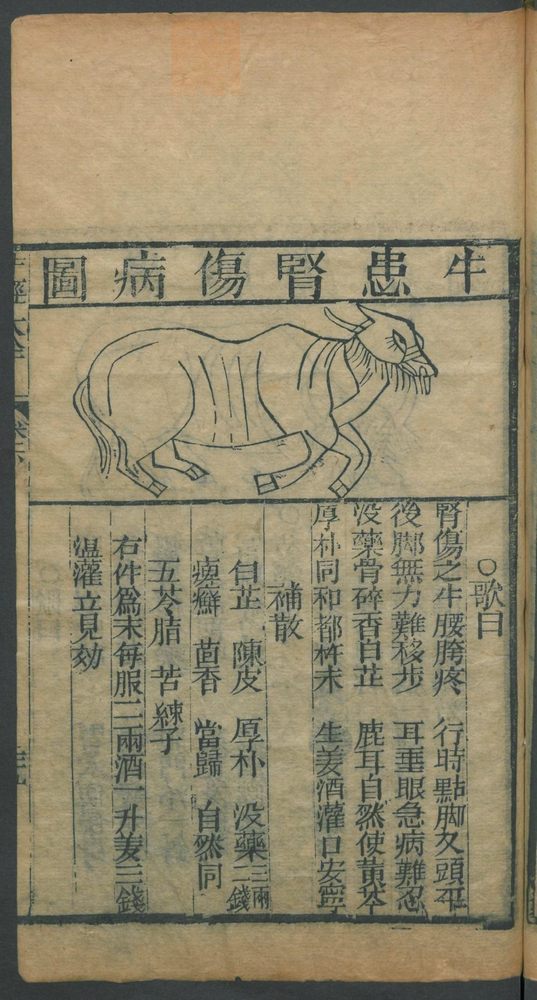 牛患腎傷病圖
○歌曰
腎傷之牛腰胯疼 行時點脚及頭平
後脚無力難移步 耳垂眼急病難忍
没藥骨碎香白芷 鹿耳自然使黄芩
厚朴同和都杵末 生姜酒灌口安寧
補散
白芷 陳皮 厚朴 没藥三兩二錢
茴香 當歸 自然同
五苓脂 苦練子
右件為末每服二兩酒一升姜三錢
温灌立見効
牛經大全 卷下